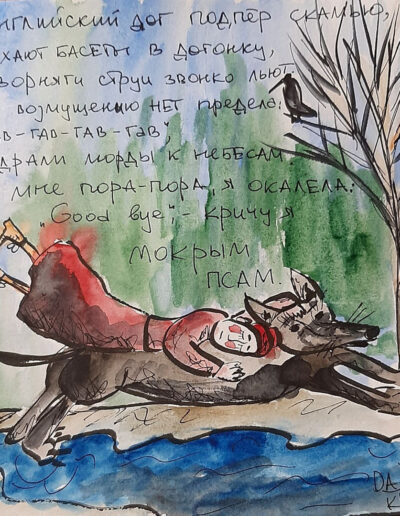 нглийский дог подпёр скамью,
хают басеты в догонку,
ворняги струи звонко льют
возмущению нет предела:
в-гав-гав-гав",
драли морды к небесам
мне пора-пора, я окалела:
„Good вye",- кричу я
мокрым
псам.
DA
K